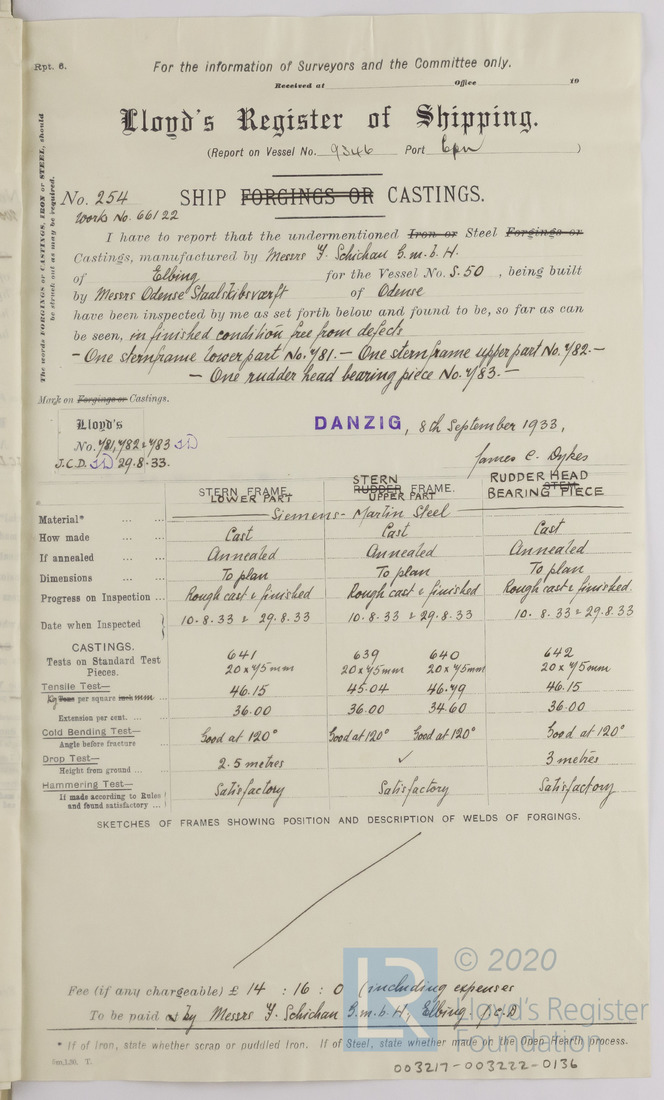 Rpt. 6.
For the information of Surveyors and the Committee only.
Received at Office 19
Lloyd's Register of Shipping.
(Report on Vessel No. 9346 Port Cpn )
No. 254 SHIP FORGINGS OR CASTINGS.
Work No. 66122
I have to report that the undermentioned Iron or Steel Forgings or
Castings, manufactured by Messrs F. Schichau G.m.b.H.
of Elbing for the Vessel No. S.50, being built
by Messrs Odense Staalskibsværft of Odense
have been inspected by me as set forth below and found to be, so far as can
be seen, in finished condition free from defects
- One sternframe lower part No. 781. - One sternframe upper part No. 782. -
- One rudder head bearing piece No. 783. -
The words FORGINGS or CASTINGS, IRON or STEEL, should
be struck out as may be required.
Mark on Forgings or Castings.
Lloyd's
No. 781, 782 & 783 JD
J.C.D. JD 29.8.33.
DANZIG, 8th September 1933,
James C. Dykes
STERN FRAME LOWER PART STERN RUDDER FRAME. UPPER PART RUDDER HEAD STEM BEARING PIECE
Material* ... ... Siemens-Martin Steel
How made ... ... Cast Cast Cast
If annealed ... ... Annealed Annealed Annealed
Dimensions ... ... To plan To plan To plan
Progress on Inspection ... Rough cast & finished Rough cast & finished Rough cast & finished.
Date when Inspected 10.8.33 & 29.8.33 10.8.33 & 29.8.33 10.8.33 & 29.8.33
CASTINGS.
Tests on Standard Test Pieces. 641 639 640 642
20 x 75mm 20 x 75mm 20 x 75mm 20 x 75mm
Tensile Test—
Kg Tons per square inch mm ... 46.15 45.04 46.79 46.15
Extension per cent. ... ... 36.00 36.00 34.60 36.00
Cold Bending Test—
Angle before fracture Good at 120° Good at 120° Good at 120° Good at 120°
Drop Test—
Height from ground ... ... 2.5 metres ✓ 3 metres
Hammering Test—
If made according to Rules and found satisfactory ... Satisfactory Satisfactory Satisfactory
SKETCHES OF FRAMES SHOWING POSITION AND DESCRIPTION OF WELDS OF FORGINGS.
© 2020
LR
Lloyd's Register
Foundation
Fee (if any chargeable) £ 14 : 16 : 0 (including expenses
To be paid by Messrs F. Schichau G.m.b.H, Elbing
* If of Iron, state whether scrap or puddled Iron. If of Steel, state whether made on the Open Hearth process.
003217-003222-0136